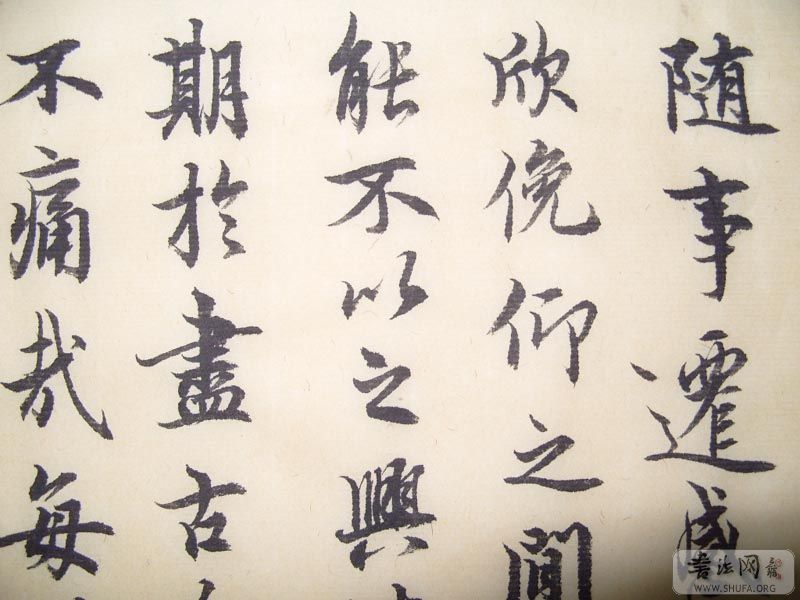 随事遷感
欣俛仰之間
能不以之興
期於盡古
不痛哉每
書法网
WWW.SHUFA.ORG